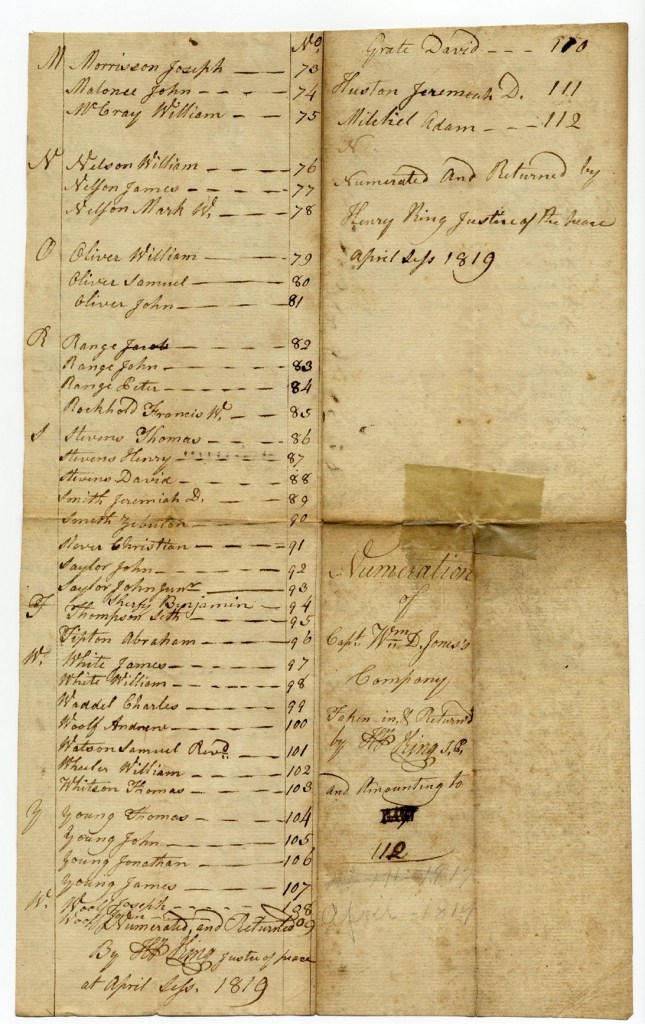 No.
M Morrisson Joseph — — 73
Malonee John - - - - 74
McCray William - - 75
N Nelson William — — — 76
Nelson James - — — — 77
Nelson Mark W. — — — 78
O Oliver William — — — 79
Oliver Samuel — — — 80
Oliver John — — — 81
R Range Jacob — — — 82
Range John — — — 83
Range Peter — — — — 84
Rockhold Francis W. — — 85
S Stevens Thomas — — — 86
Stevens Henry - - - - - - 87
Stevens David — — — — 88
Smith Jeremiah D. — — — 89
Smith — — — 90
Stover Christian — — — 91
Saylor John — — — — 92
Saylor John Junr — — — 93
Sherfy Benjamin — — 94
T Thompson Seth — — — 95
Tipton Abraham — — — 96
W. White James — — — — 97
White William — — — — 98
Waddel Charles — — — 99
Woolf Andrew — — — 100
Watson Samuel Revd. — 101
Wheeler William — — — 102
Whitson Thomas — — — 103
Y Young Thomas — — — 104
Young John — — — — 105
Young Jonathan — — — 106
Young James — — — 107
W. Woolf Joseph - - - - - 108
Woolf John 109
Numerated, and Returned
By Hy. King Justice of peace
at April Sess. 1819
Grate David - - - 110
Huston Jeremiah D. 111
Mitchel Adam - - - 112
N
Numerated And Returned by
Henry King Justice of the peace
April Sess 1819
Numeration
of
Capt. Wm. D. Jones's
Company
Taken in, & Returnd
by Hy. King J.P.
and Amounting to
112
1819
April - 1819